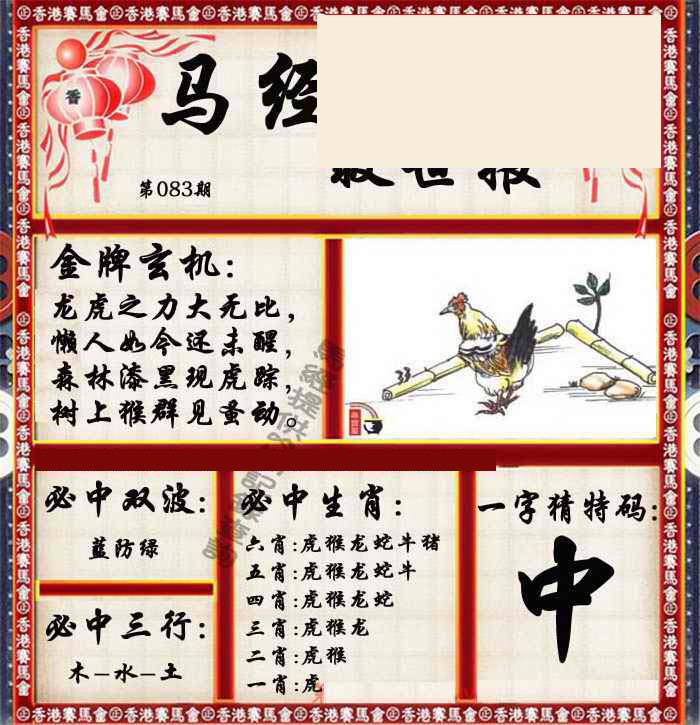 马经
救世报
第083期
金牌玄机:
龙虎之力大无比,
懒人如今还未醒,
森林漆黑现虎踪,
树上猴群见蚤动。
必中双波:
蓝防绿
必中三行:
木-水-土
必中生肖:
六肖:虎猴龙蛇牛猪
五肖:虎猴龙蛇牛
四肖:虎猴龙蛇
三肖:虎猴龙
二肖:虎猴
一肖:虎
一字猜特码:
中
香港賽馬會